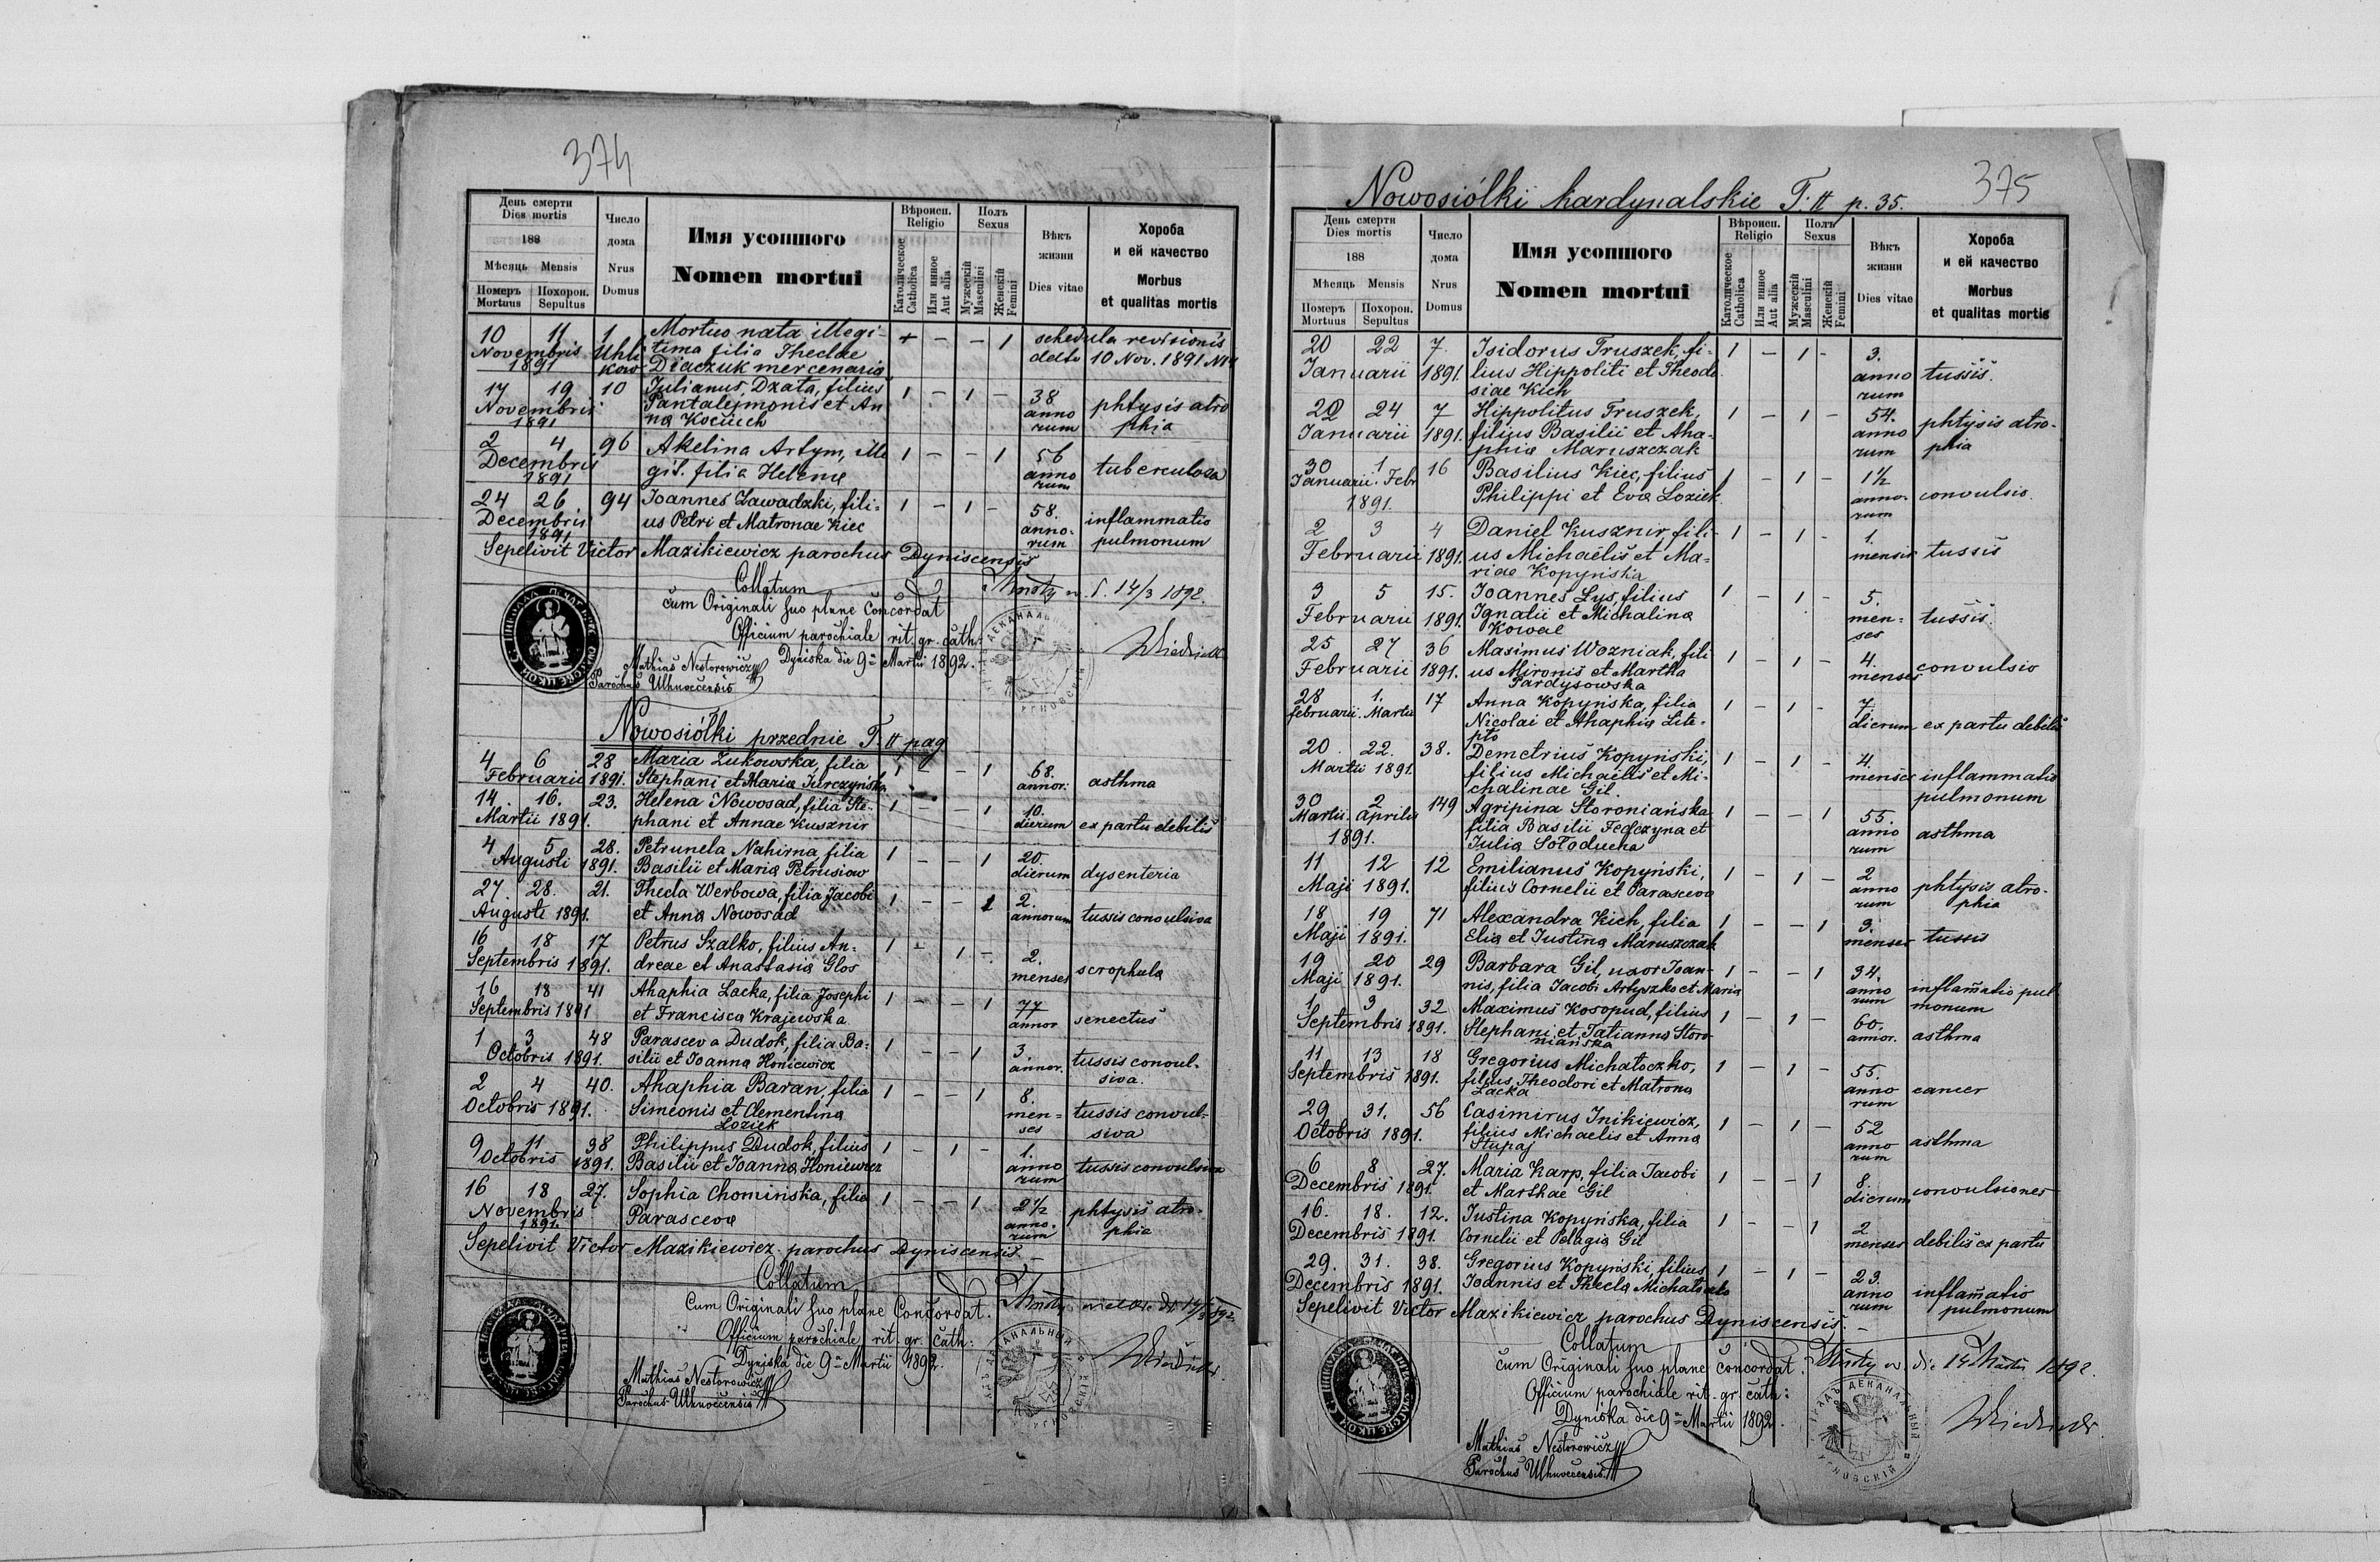 374
День смерти
Dies mortis
188
Мѣсяць Mensis
Номеръ Mortuus
Похорон. Sepultus
Число дома
Nrus Domus
Имя усопшого
Nomen mortui
Вѣроисп.
Religio
Католическое Catholica
Или инное Aut alia
Полъ
Sexus
Мужескій Masculini
Женскій Femini
Вѣкъ жизни
Dies vitae
Хороба и ей качество
Morbus et qualitas mortis
10 11 1 Mortuo nata illegi- + - - 1 schedula revisionis
Novembris Uhli tima filia Theclae ddto 10 Nov. 1891 N14
1891 kow Diaczuk mercenaria
17 19 10 Julianus Dzata, filius 1 - 1 - 38 phtysis atro
Novembris Pantalejmonis et An anno phia
1891 na Kociuch rum
2 4 96 Akelina Artym, ille 1 - - 1 56 tuberculosa
Decembris git. filia Helenae anno
1891 rum
24 26 94 Joannes Zawadzki, fili- 1 - 1 - 58. inflammatio
Decembris us Petri et Matronae Kiec anno- pulmonum
1891 rum
Sepelivit Victor Mazikiewicz parochus Dyniscensis
Collatum
cum Originali suo plane Concordat 14/3 1892.
Officium parochiale rit. gr. cath:
Dyniska die 9na Martii 1892.
Mathias Nestorowicz
Parochus Uhnoviensis
Nowosiółki przednie T. II pag
4 6 28 Maria Zukowska, filia 1 - - 1 68. asthma
Februarii 1891. Stephani et Maria Jurczyńska annor:
14. 16. 23. Helena Nowosad, filia Ste- 1 - - 1 10. ex partu debilis
Martii 1891. phani et Annae Kusznir dierum
4 5 28. Petrunela Nahirna, filia 1 - - 1 20. dysenteria
Augusti 1891. Basilii et Maria Petrusiow dierum
27 28. 21. Thecla Werbowa, filia Jacobi 1 - - 1 2. tussis convulsiva
Augusti 1891. et Anna Nowosad annorum
16 18 17 Petrus Szalko, filius An- 1 - 1 - 2. scrophula
Septembris 1891. dreae et Anastasia Glos menses
16 18 41 Ahaphia Lacka, filia Josephi 1 - - 1 77 senectus
Septembris 1891 et Francisca Krajewska annor
1 3 48 Parasceva Dudok, filia Ba- 1 - - 1 3. tussis convul-
Octobris 1891. silii et Joanna Honiewicz annor. siva.
2 4 40. Ahaphia Baran, filia 1 - - 1 8. tussis convul-
Octobris 1891. Simeonis et Clementina men= siva
Loziek ses
9 11 38 Philippus Dudok, filius 1 - 1 - 1. tussis convulsiva
Octobris 1891. Basilii et Joanna Honiewicz anno
rum
16 18 27. Sophia Chomińska, filia 1 - - 1 2½ phtysis atro-
Novembris Parasceva anno- phia
1891. rum
Sepelivit Victor Mazikiewicz parochus Dyniscensis
Collatum
Cum Originali suo plane Concordat.
Officium parochiale rit. gr. cath:
Dyniska die 9na Martii 1892.
Mathias Nestorowicz
Parochus Uhnoviensis
375
Nowosiółki kardynalskie T. II p. 35.
День смерти
Dies mortis
188
Мѣсяць Mensis
Номеръ Mortuus
Похорон. Sepultus
Число дома
Nrus Domus
Имя усопшого
Nomen mortui
Вѣроисп.
Religio
Католическое Catholica
Или инное Aut alia
Полъ
Sexus
Мужескій Masculini
Женскій Femini
Вѣкъ жизни
Dies vitae
Хороба и ей качество
Morbus et qualitas mortis
20 22 7. Isidorus Truszek, fi- 1 - 1 - 3. tussis.
Januarii 1891. lius Hippoliti et Theodo anno
siae Kich rum
22 24 7 Hippolitus Truszek, 1 - 1 - 54. phtysis atro-
Januarii 1891. filius Basilii et Aha- anno phia
phia Maruszczak rum
30 1 16 Basilius Kiec, filius 1 - 1 - 1½ convulsio.
Januarii. Febr Philippi et Eva Loziek anno-
1891. rum
2 3 4 Daniel Kusznir, fili- 1 - 1 - 1. tussis
Februarii 1891. us Michaelis et Ma- mensis
riae Kopyńska
3 5 15. Joannes Lys, filius 1 - 1 - 5. tussis.
Februarii 1891. Ignatii et Michalina men=
Kowal ses
25 27 36 Maximus Wozniak, fili 1 - 1 - 4. convulsio
Februarii 1891. us Mironis et Martha menses
Pardysowska
28 1. 17 Anna Kopyńska, filia 1 - 1 - 7. ex partu debilis
februarii. Martii Nicolai et Ahaphia Lite- dierum
pto
20. 22. 38. Demetrius Kopyński, 1 - 1 - 4. inflammatio
Martii 1891. filius Michaelis et Mi- menses pulmonum
chalinae Gil.
30 2 149 Agripina Storoniańska 1 - - 1 55. asthma
Martii. Aprilis filia Basilii Fedczyna et anno
1891. Julia Sołoducha rum
11 12 12 Emilianus Kopyński, 1 - 1 - 2 phtysis atro-
Maji 1891. filius Cornelii et Parasceva anno phia
rum
18 19 71 Alexandra Kich, filia 1 - - 1 3. tussis
Maji 1891. Elia et Justina Maruszczak menses
19 20 29 Barbara Gil, uxor Joan- 1 - - 1 34. inflam̄atio pul
Maji 1891. nis, filia Jacobi Artyszko et Maria anno monum
rum
1 3 32 Maximus Kosopud, filius 1 - 1 - 60. asthma
Septembris 1891. Stephani et Tatianna Storo- annor.
niańska
11 13 18 Gregorius Michałoczko, 1 - 1 - 55. cancer
Septembris 1891. filius Theodori et Matrona anno
Lacka rum
29 31. 56 Casimirus Inikiewicz, 1 - 1 - 52 asthma
Octobris 1891. filius Michaelis et Anna anno
Stupaj rum
6 8 27. Maria Karp, filia Jacobi 1 - - 1 8 convulsiones
Decembris 1891. et Marthae Gil dierum
16. 18. 12. Justina Kopyńska, filia 1 - - 1 2 debilis ex partu
Decembris 1891. Cornelii et Pelagia Gil menses
29. 31. 38. Gregorius Kopyński, filius 1 - 1 - 23. inflam̄atio
Decembris 1891. Joannis et Thecla Michałoczko anno pulmonum
rum
Sepelivit Victor Mazikiewicz parochus Dyniscensis.
Collatum
cum Originali suo plane concordat. 1892.
Officium parochiale rit. gr. cath:
Dyniska die 9na Martii 1892.
Mathias Nestorowicz
Parochus Uhnoviensis